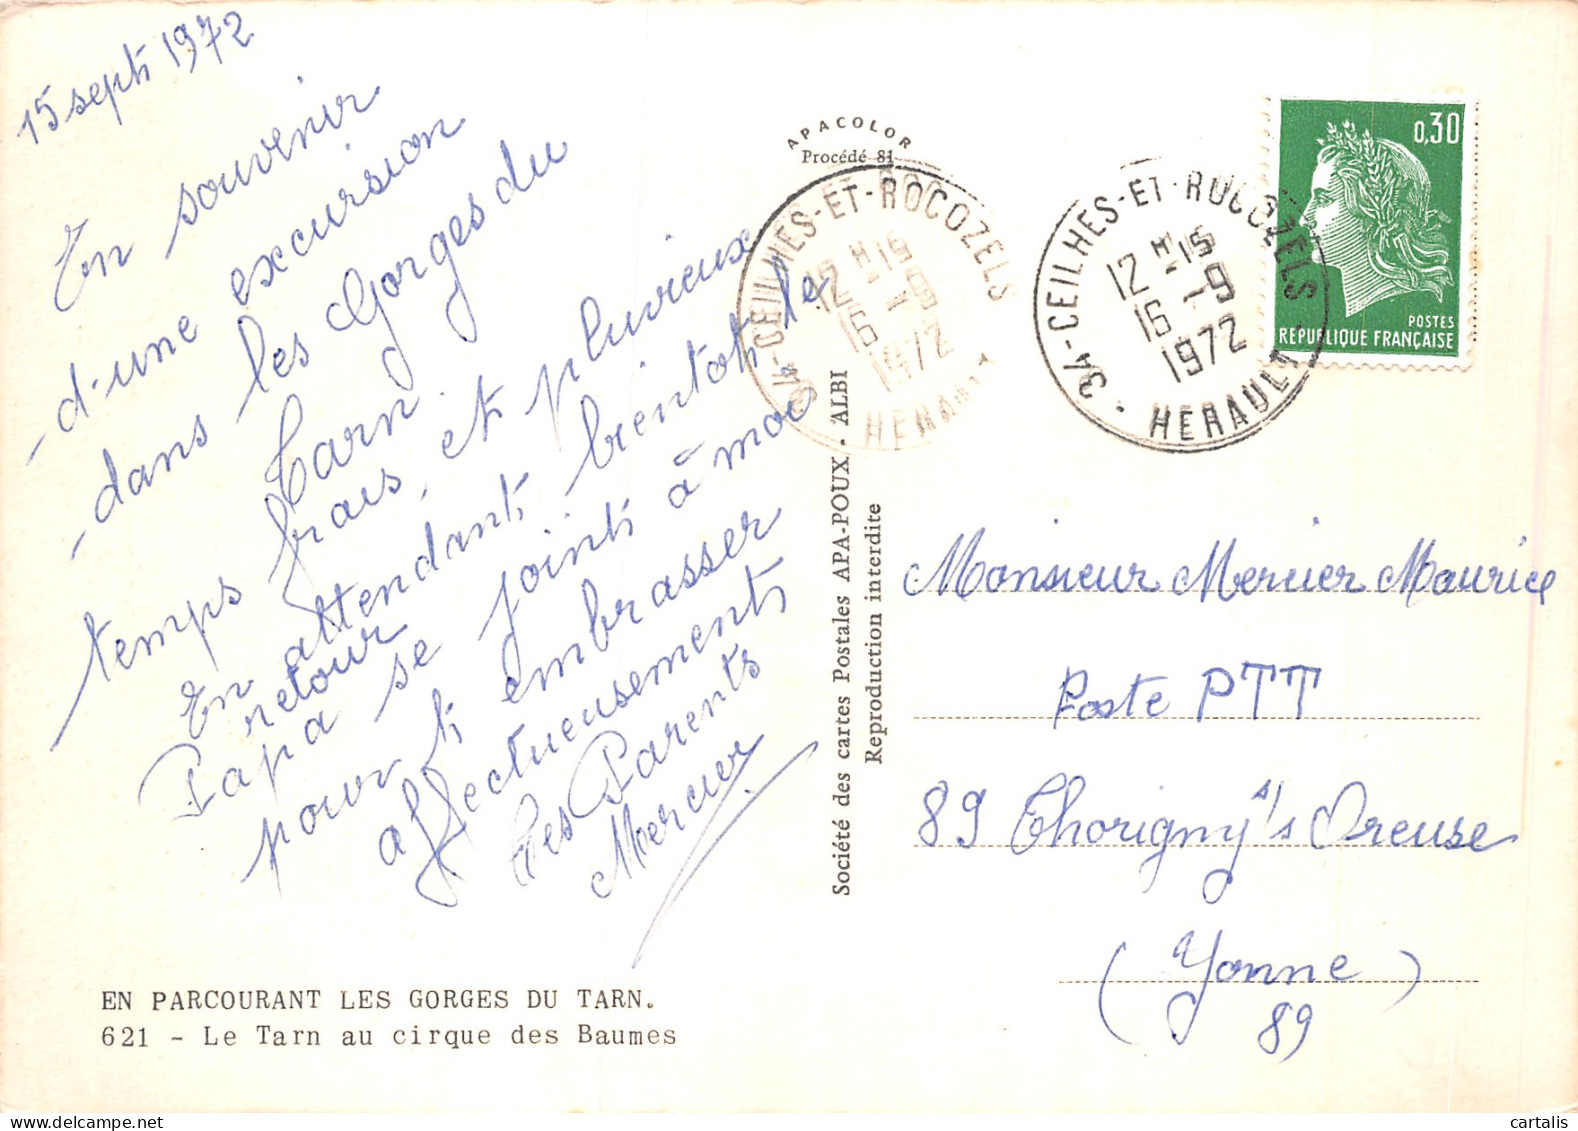 15 sept 1972
En souvenir
d'une excursion
dans les Gorges du
Tarn
temps frais, et pluvieux
En attendant bientot le
retour
Papa se joint à moi
pour t embrasser
affectueusements
Tes Parents
Mercier
EN PARCOURANT LES GORGES DU TARN.
621 - Le Tarn au cirque des Baumes
APACOLOR
Procédé 81
Société des cartes Postales APA-POUX - ALBI
Reproduction interdite
34-CEILHES-ET-ROCOZELS
12 H 15
16 - 9
1972
HERAULT
34-CEILHES-ET-ROCOZELS
12 H 15
16 - 9
1972
HERAULT
0,30
POSTES
REPUBLIQUE FRANÇAISE
Monsieur Mercier Maurice
Poste PTT
89 Thorigny s/s Oreuse
(Yonne)
89
cartalis